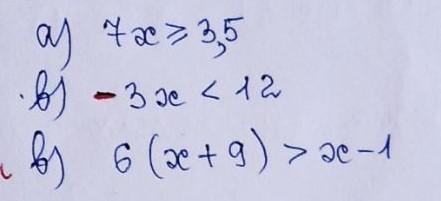 а) 7x ≥ 3,5
б) - 3x < 12
в) 6 (x + 9) > x - 1